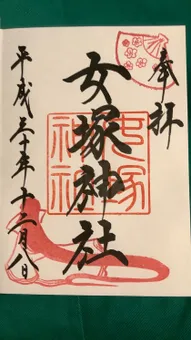 奉拝
女塚神社
平成三十年十二月八日